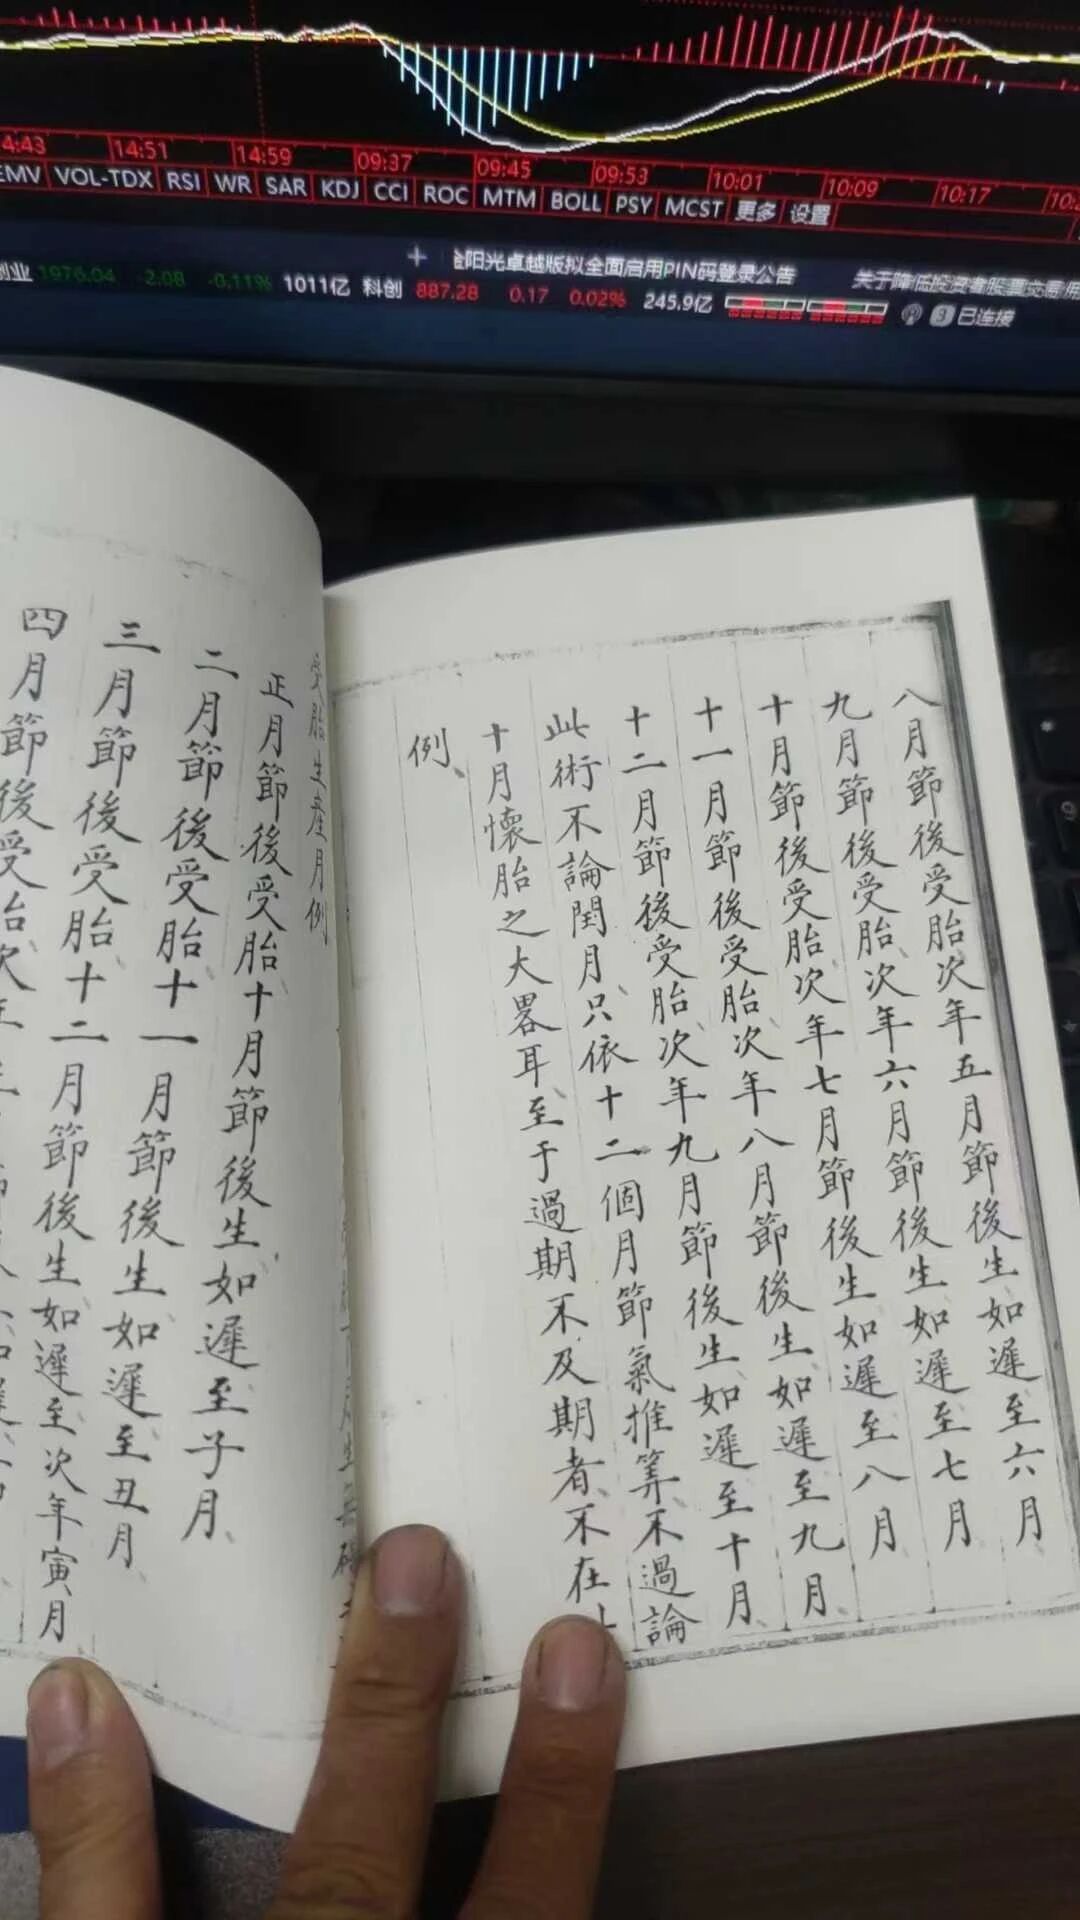 14:51
14:59
09:37
09:45
09:53
10:01
10:09
10:17
EMV VOL-TDX RSI WR SAR KDJ CCI ROC MTM BOLL PSY MCST 更多 设置
阳光卓越版拟全面启用PIN码登录公告
关于降低投资者股票交易
创业 1976.04 -2.08 -0.11% 1011亿 科创 887.28 0.17 0.02% 245.9亿 已连接
八月節後受胎次年五月節後生如遲至六月
九月節後受胎次年六月節後生如遲至七月
十月節後受胎次年七月節後生如遲至八月
十一月節後受胎次年八月節後生如遲至九月
十二月節後受胎次年九月節後生如遲至十月
此術不論閏月只依十二個月節氣推筭不過論
十月懷胎之大畧耳至于過期不及期者不在
例
受胎生產月例
正月節後受胎十月節後生如遲至子月
二月節後受胎十一月節後生如遲至丑月
三月節後受胎十二月節後生如遲至次年寅月
四月節後受胎次年